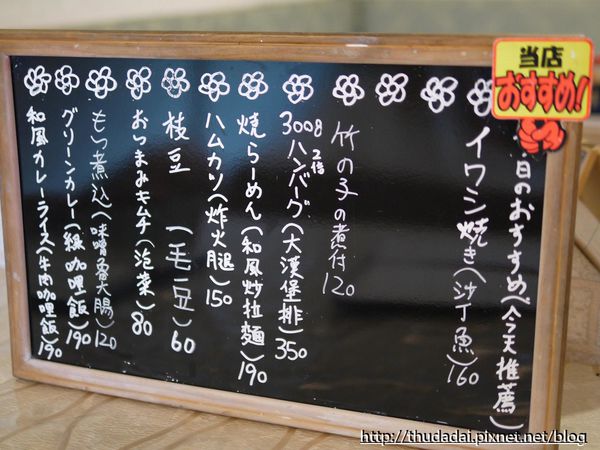 当店
おすすめ!
日のおすすめ(今天推薦)
イワシ焼き(沙丁魚)160
竹の子の煮付120
300g 2倍 ハンバーグ(大漢堡排)350
焼らーめん(和風炒拉麵)190
ハムカツ(炸火腿)150
枝豆 (毛豆)60
おつまみキムチ(泡菜)80
もつ煮込(味噌魯大腸)120
グリーンカレー(綠咖哩飯)190
和風カレーライス(牛肉咖哩飯)190
http://thudadai.pixnet.net/blog